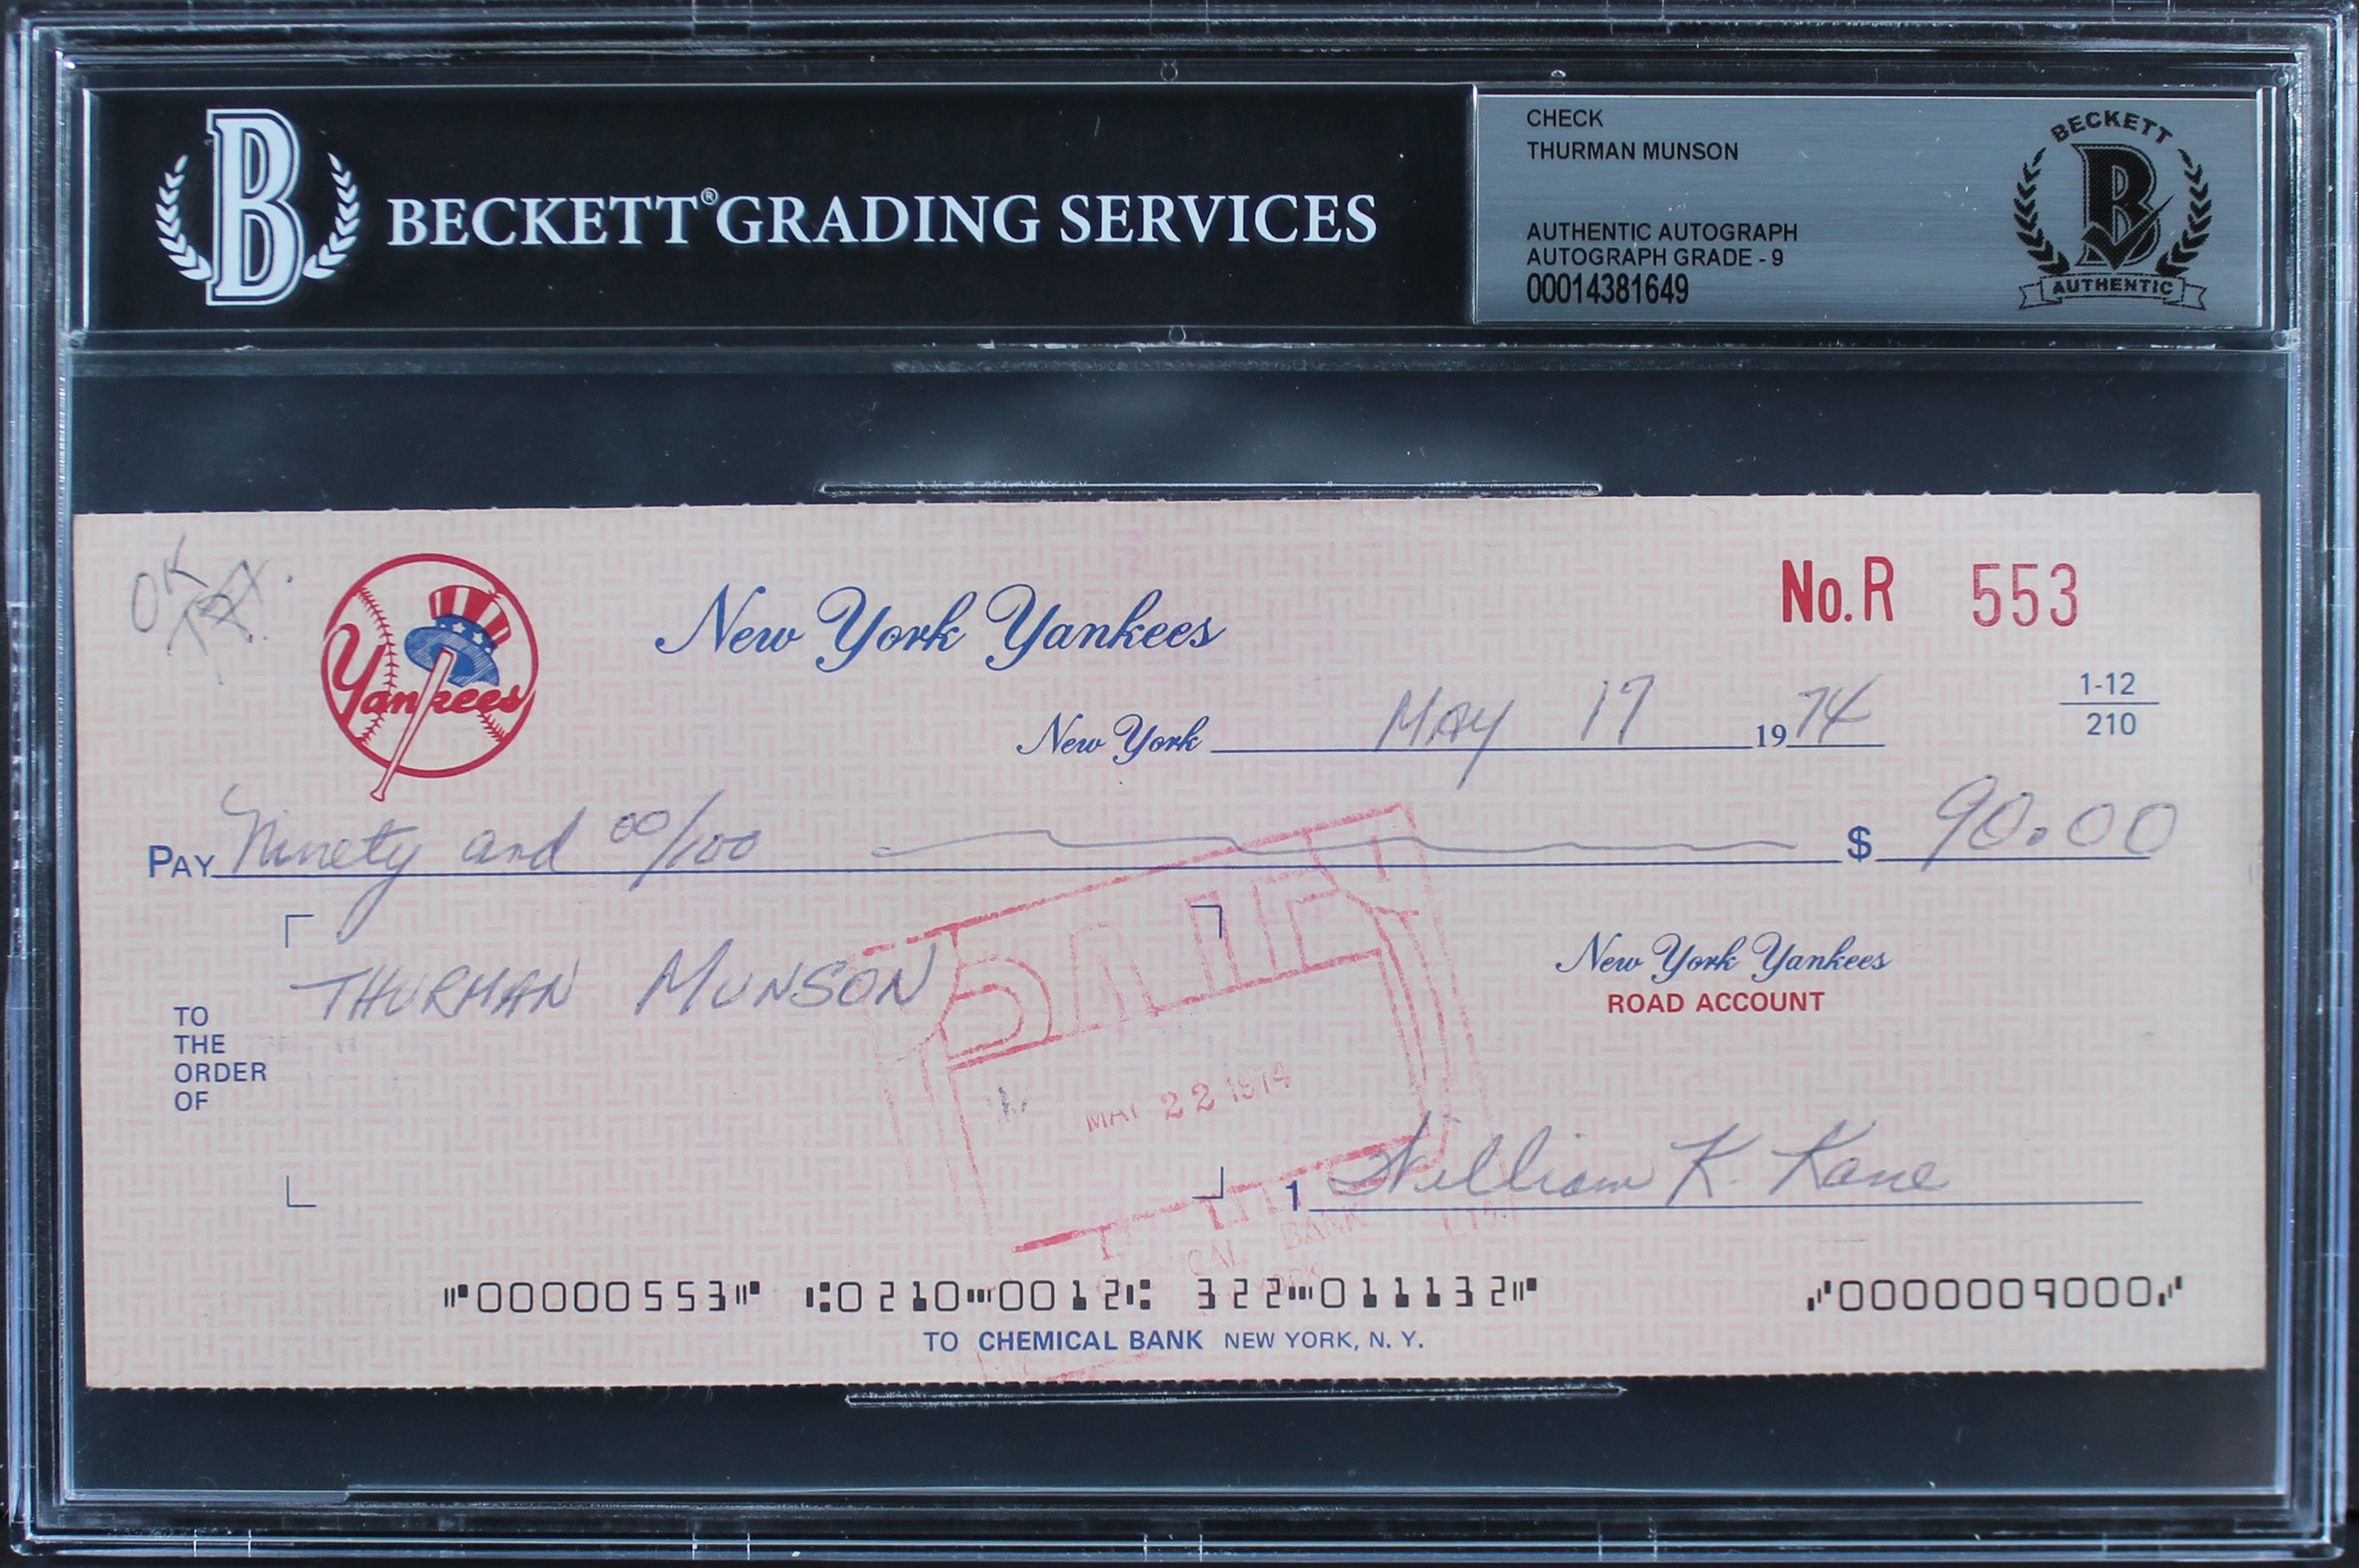 B BECKETT® GRADING SERVICES
CHECK
THURMAN MUNSON
AUTHENTIC AUTOGRAPH
AUTOGRAPH GRADE - 9
00014381649
BECKETT
B
AUTHENTIC
OK
Yankees
New York Yankees
No. R 553
New York MAY 17 1974
1-12
210
PAY Ninety and 00/100 $ 90.00
THURMAN MUNSON
TO
THE
ORDER
OF
New York Yankees
ROAD ACCOUNT
PAID
MAY 22 1974
1 William K. Kane
BANK
⑈00000553⑈ ⑆0210⑉0012⑆ 322⑉011132⑈ ⑇0000009000⑇
TO CHEMICAL BANK NEW YORK, N. Y.